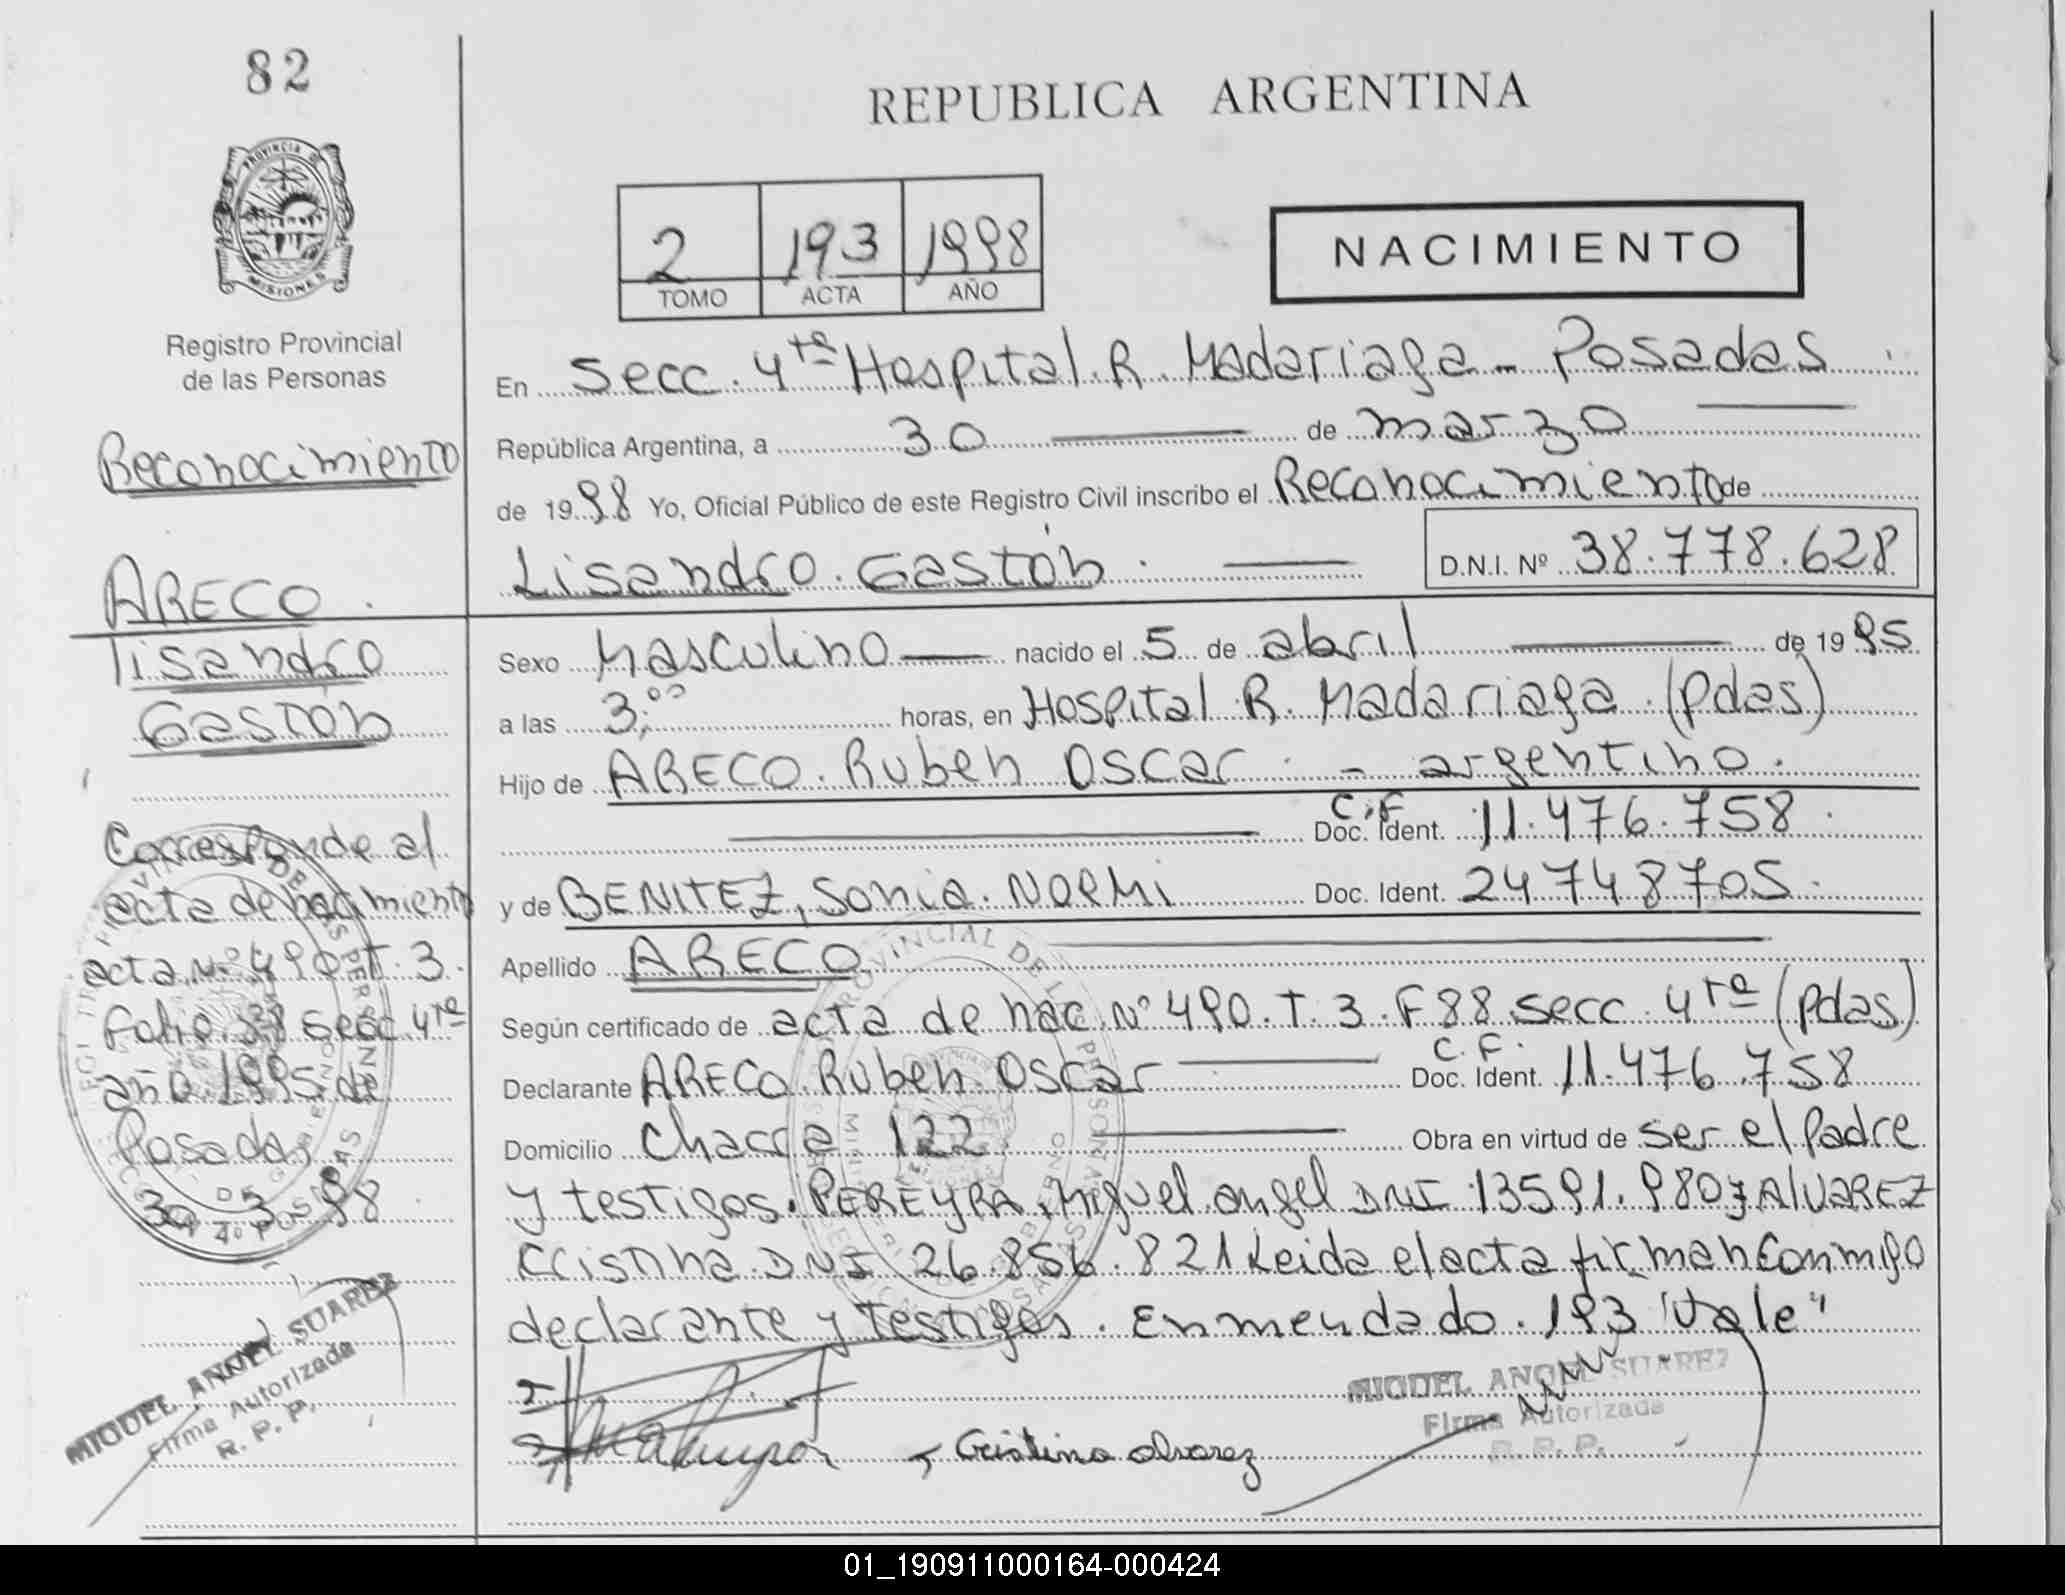 82
REPUBLICA ARGENTINA
PROVINCIA DE MISIONES
2 193 1998
TOMO ACTA AÑO
NACIMIENTO
Registro Provincial
de las Personas
Reconocimiento
ARECO.
Lisandro
Gastón
Corresponde al
acta de nacimiento
acta Nº 490 T. 3.
Folio 88 secc 4ta
año 1995 de
Posadas
30 3 98.
MIGUEL ANGEL SUAREZ
Firma Autorizada
R. P. P.
En Secc. 4ta Hospital. R. Madariaga - Posadas
República Argentina, a 30 de marzo
de 1998 Yo, Oficial Público de este Registro Civil inscribo el Reconocimiento de
Lisandro. Gastón. D.N.I. Nº 38.778.628
Sexo Masculino nacido el 5 de abril de 1995
a las 3,00 horas, en Hospital R. Madariaga. (Pdas)
Hijo de ARECO. Ruben Oscar - argentino.
C.F Doc. Ident. 11.476.758.
y de BENITEZ, Sonia. NOEMi Doc. Ident. 24748705.
Apellido ARECO
Según certificado de acta de nac. Nº 490. T. 3. F 88 secc. 4ta (Pdas)
Declarante ARECO. Ruben. Oscar C.F. Doc. Ident. 11.476.758
Domicilio Chacra 122. Obra en virtud de ser el Padre
y testigos. PEREYRA, Miguel angel DNI 13591.980 y AlVAREZ
Cristina. DNI 26.856.821 Leida el acta firman conmigo
declarante y testigos. Enmendado. 193 "Vale"
Cristina Alvarez
MIGUEL ANGEL SUAREZ
Firma Autorizada
R. P. P.
01_190911000164-000424